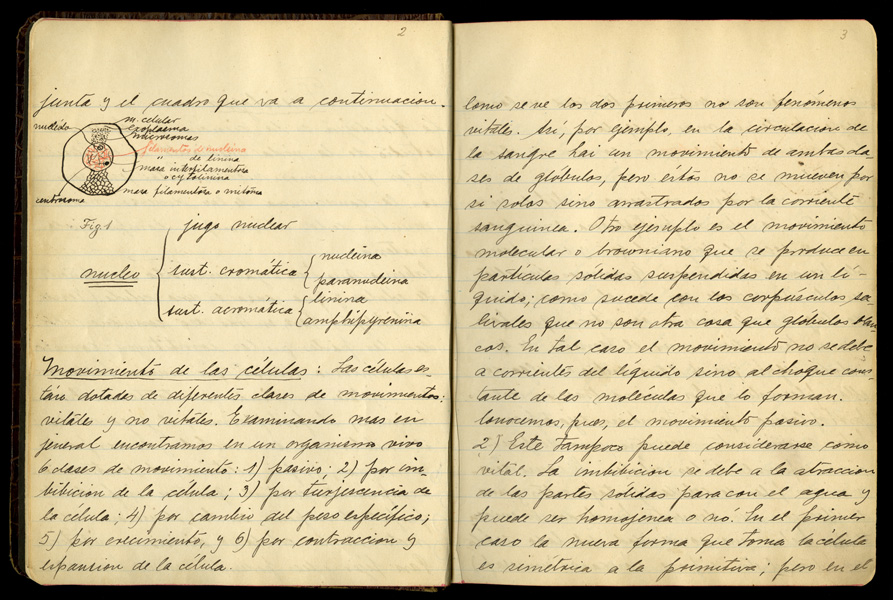 2
junta y el cuadro que va a continuacion.
m. celular
nucleolo
exoplasma
microsomas
filamentos d nucleina
" de linina
masa interfilamentosa
o cytolinina
masa filamentosa o mitoma
centrosoma
Fig 1
jugo nuclear
nucleo
sust. cromática
nucleina
paranucleina
sust. acromática
linina
amphipyrenina
Movimiento de las células: Las células es-
tán dotadas de diferentes clases de movimientos:
vitales y no vitales. Examinando mas en
jeneral encontramos en un organismo vivo
6 clases de movimiento: 1) pasivo; 2) por im-
bibicion de la célula; 3) por túrjescencia de
la célula; 4) por cambio del peso específico;
5) por crecimiento, y 6) por contraccion y
espansion de la célula.
3
Como se ve los dos primeros no son fenómenos
vitales. Así, por ejemplo, en la circulacion de
la sangre hai un movimiento de ambas cla-
ses de glóbulos, pero éstos no se mueven por
si solos sino arrastrados por la corriente
sanguinea. Otro ejemplo es el movimiento
molecular o browniano que se produce en
partículas sólidas suspendidas en un lí-
quido; como sucede con los corpúsculos sa-
livales que no son otra cosa que glóbulos blan-
cos. En tal caso el movimiento no se debe
a corrientes del líquido sino al choque cons-
tante de las moléculas que lo forman.
Conocemos, pues, el movimiento pasivo.
2) Este tampoco puede considerarse como
vital. La imbibicion se debe a la atraccion
de las partes sólidas para con el agua y
puede ser homojénea o nó. En el primer
caso la nueva forma que toma la célula
es simétrica a la primitiva; pero en el